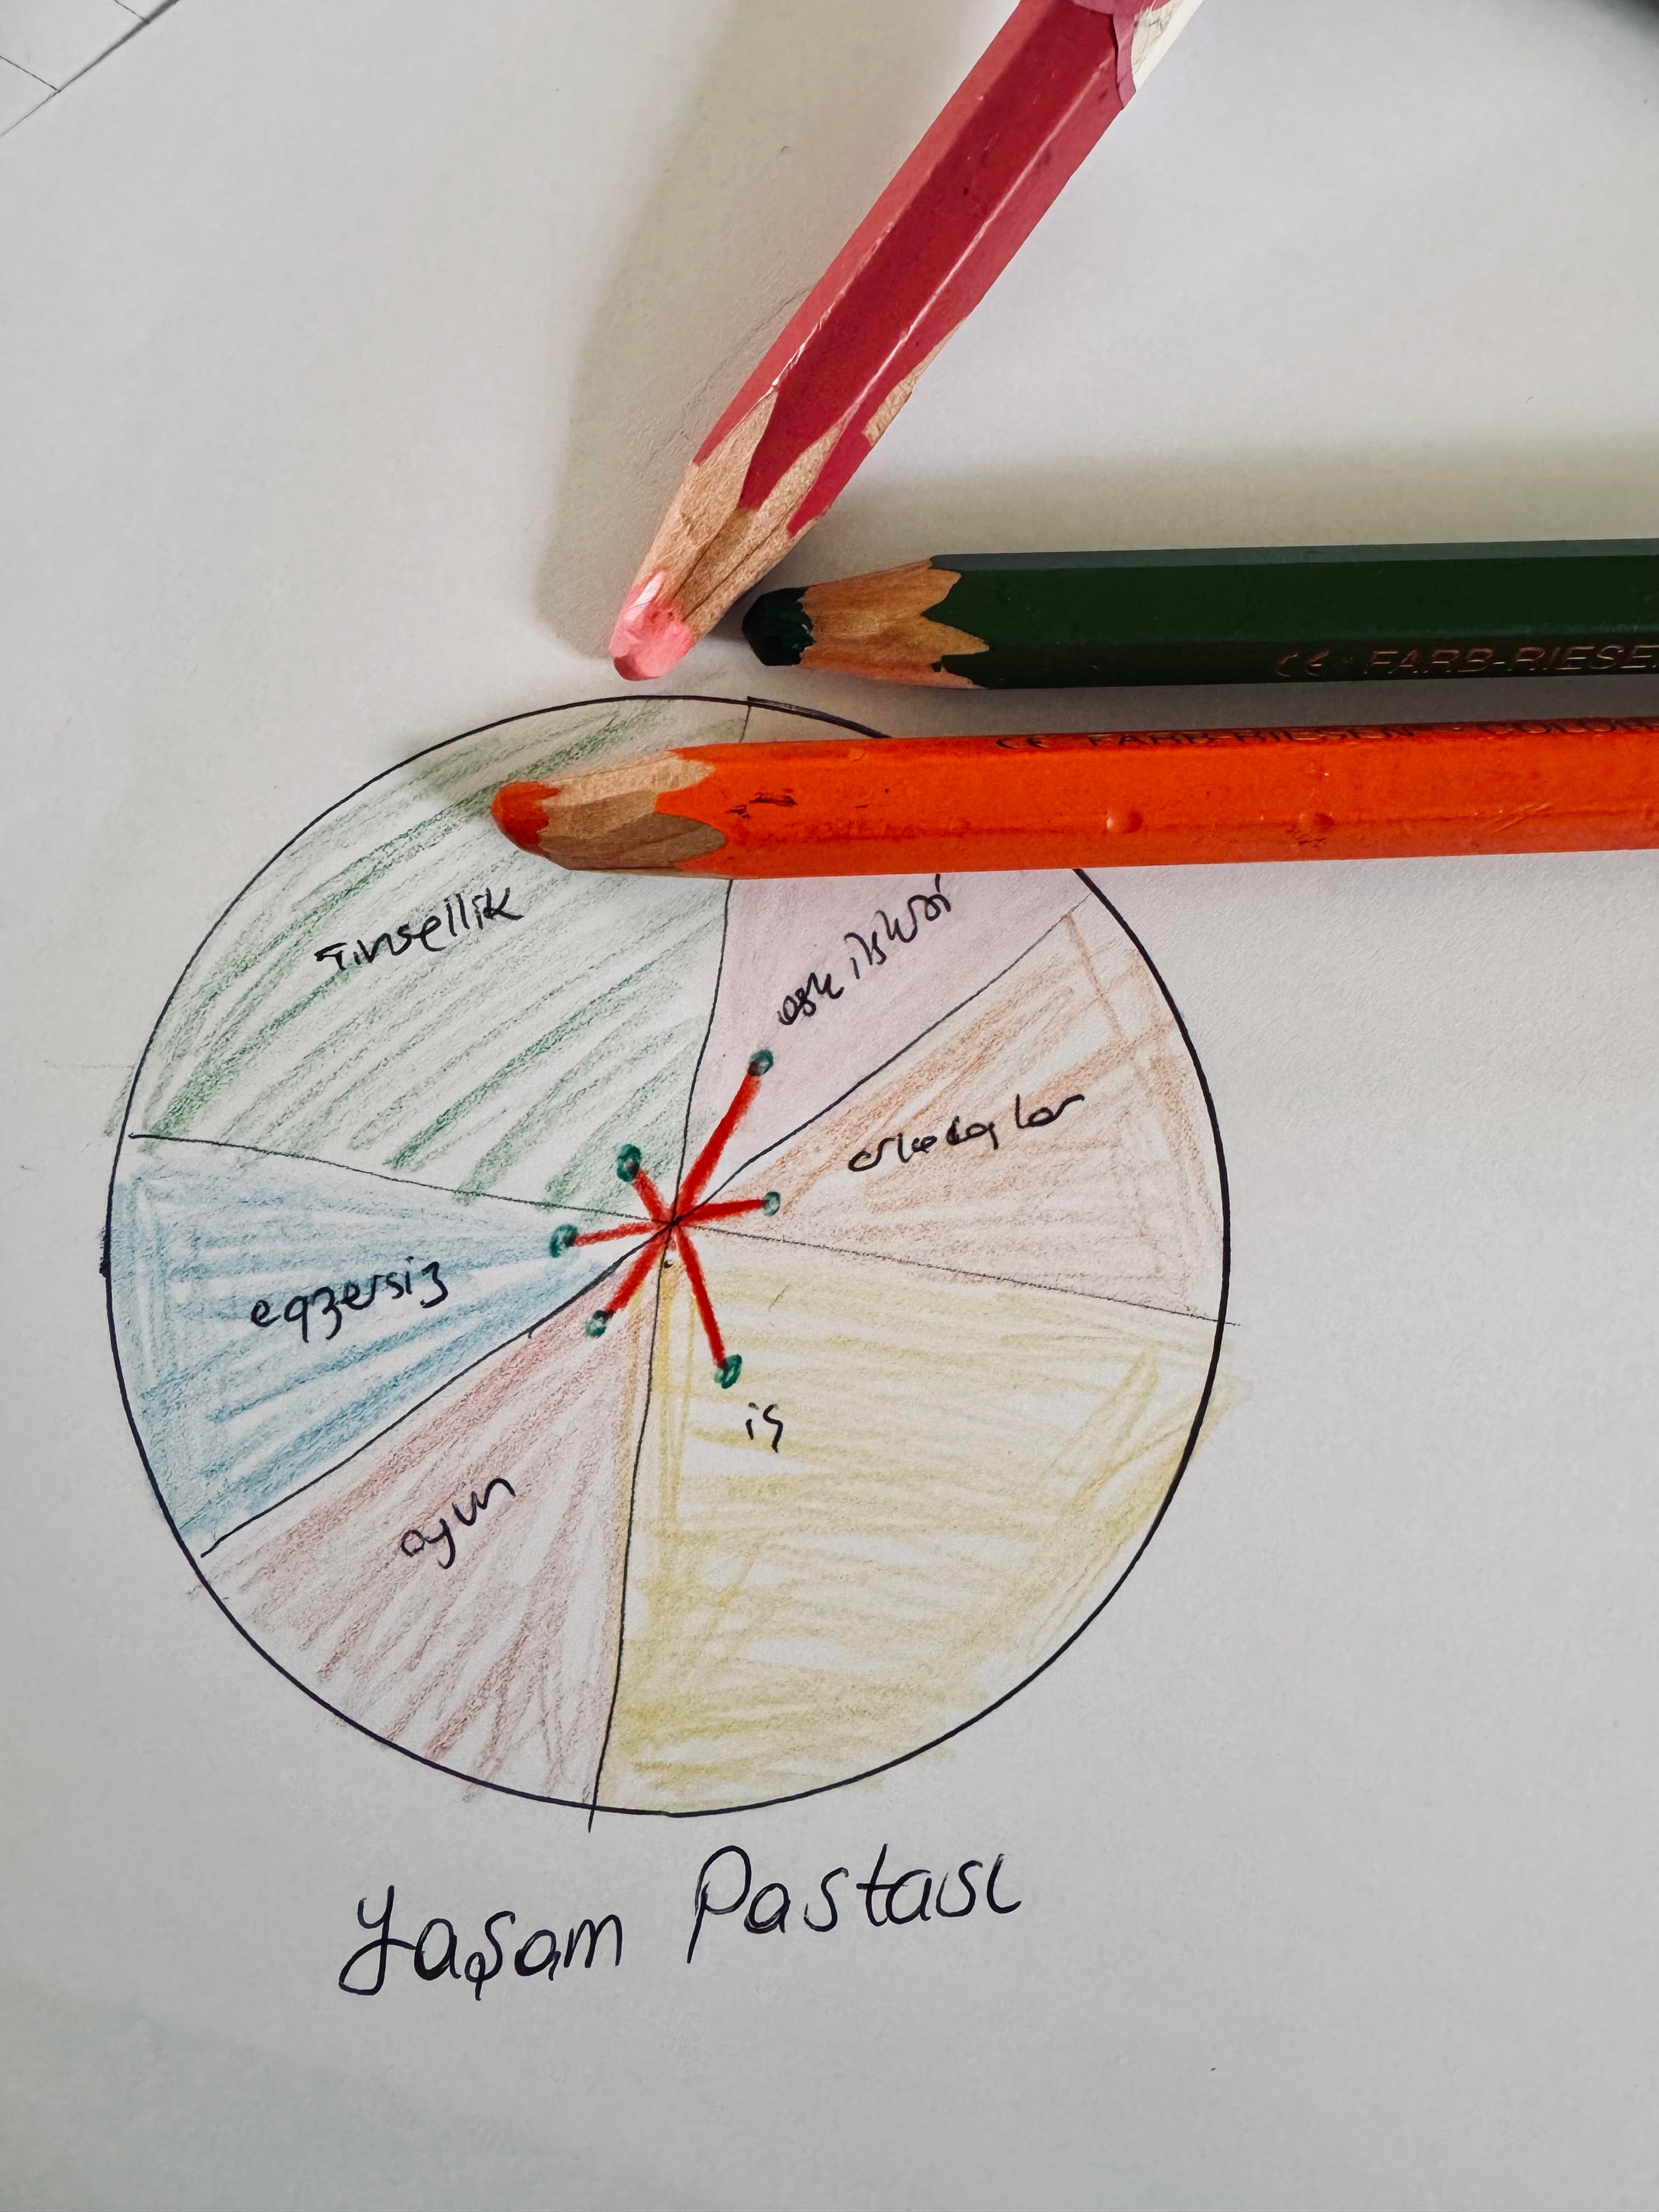 CE FARB-RIESE
CE FARB-RIESEN COLOR
Tinsellik
aşk ilişkisi
arkadaşlar
egzersiz
iş
oyun
Yaşam Pastası